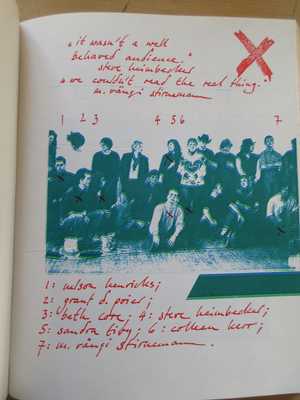 „it wasn't a well
behaved audience."
steve heimbecker
„we couldn't read the real thing."
m. vängi stirnemann
1 2 3 4 5 6 7
1: nelson henricks;
2: grant d. poier;
3: beth core; 4: steve heimbecker;
5: sandra tivy; 6: colleen kerr;
7: m. vängi stirnemann.